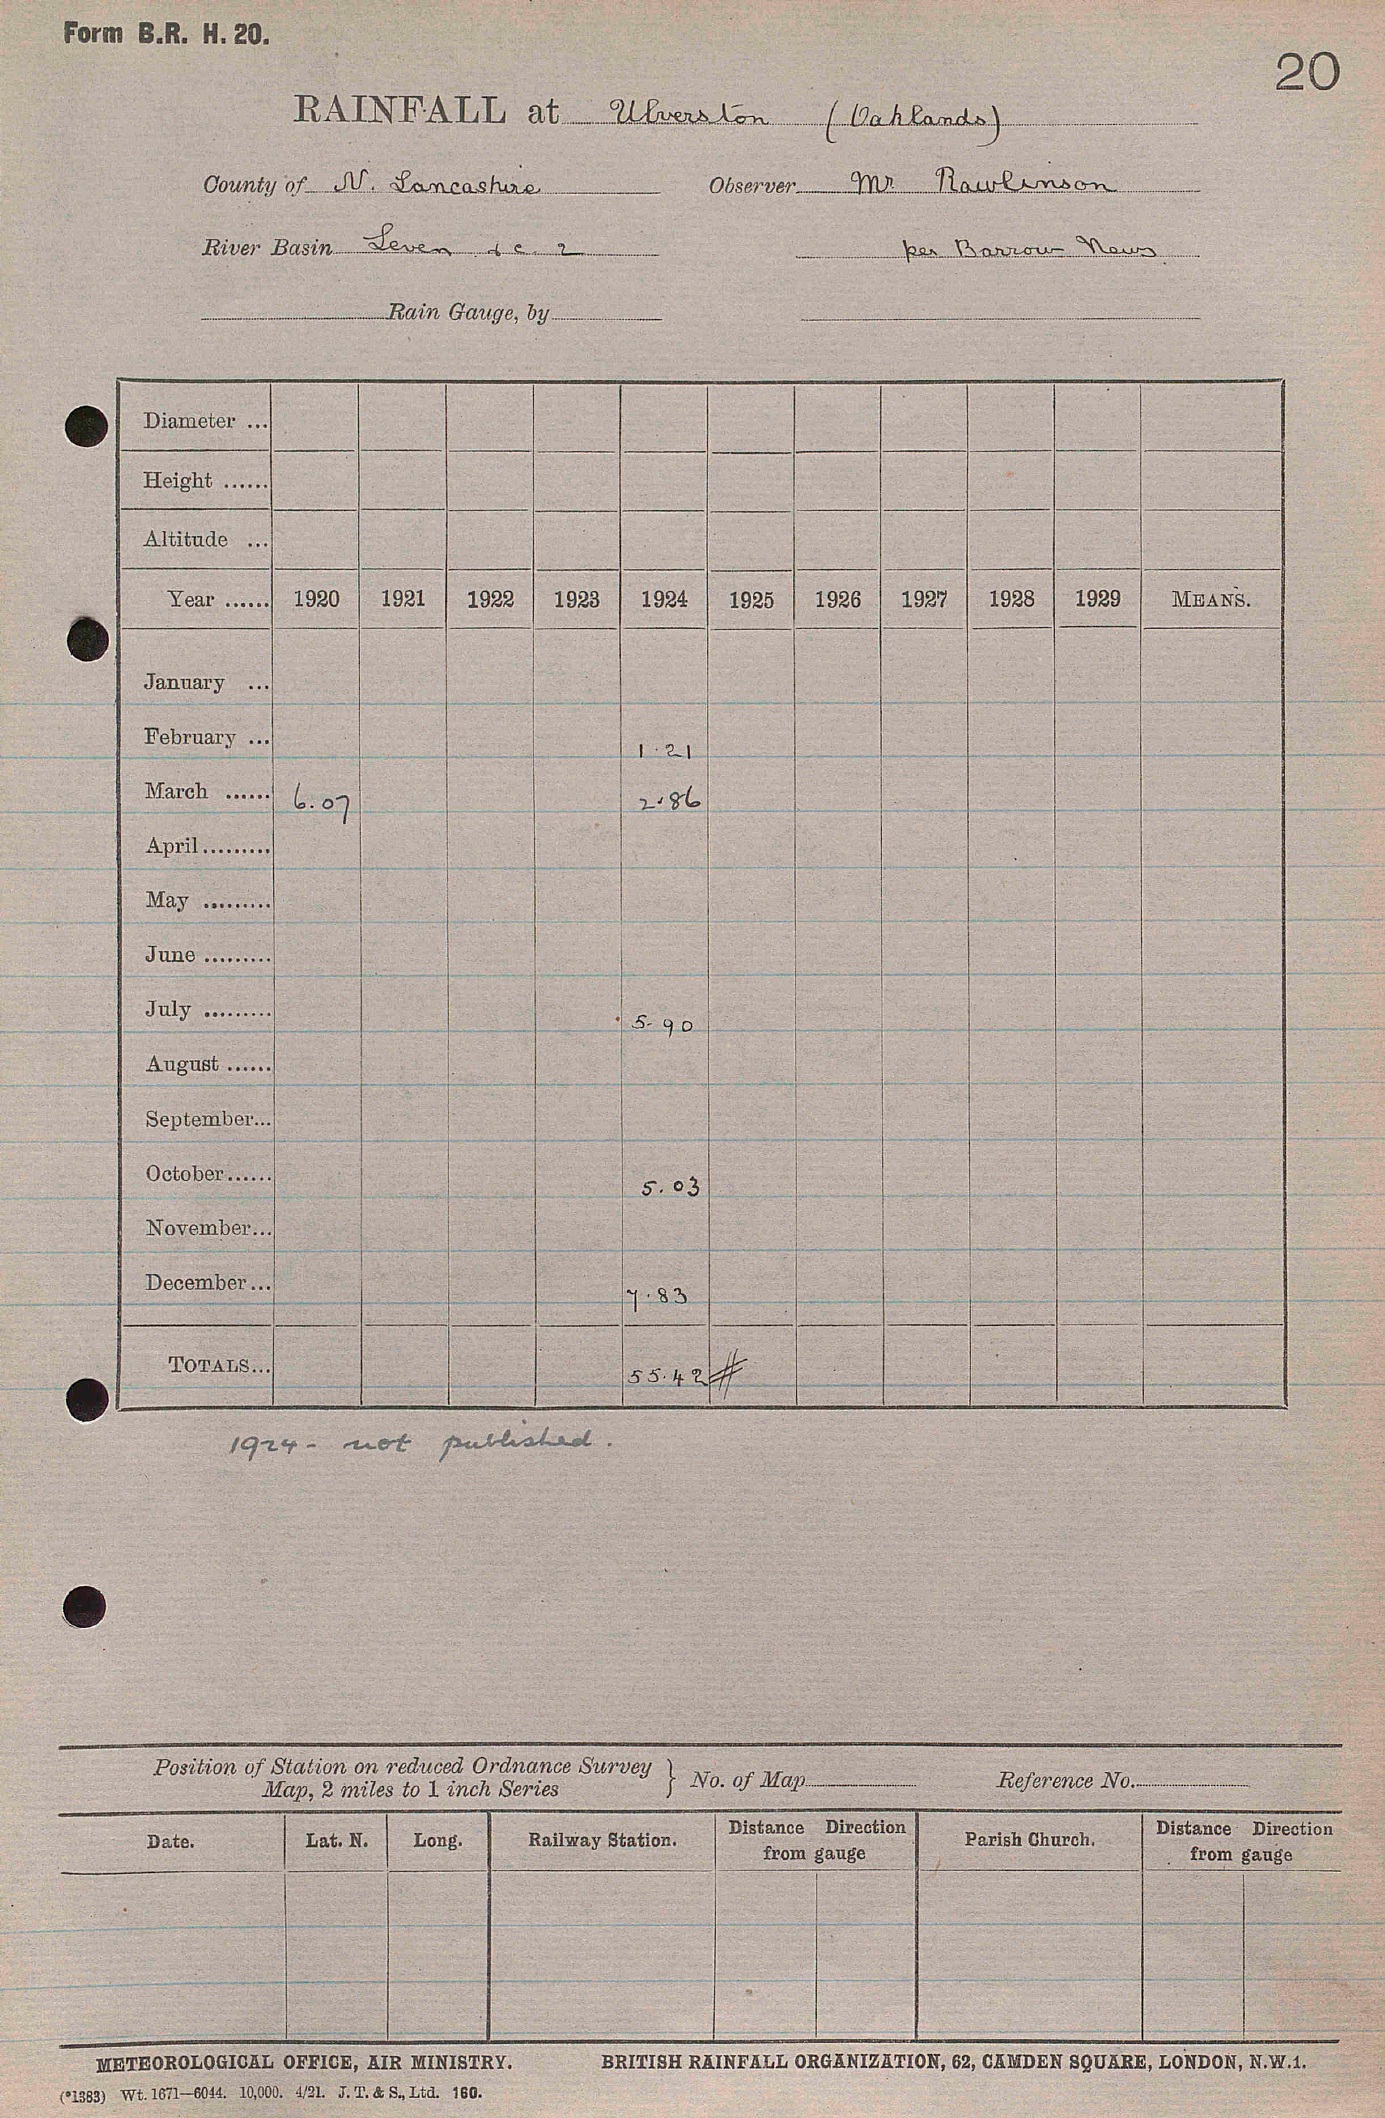 Form B.R. H. 20.
20
RAINFALL at Ulverston (Oaklands)
County of N. Lancashire Observer Mr Rawlinson
River Basin Leven &c. 2 per Barrow News
Rain Gauge, by
Diameter ...
Height ......
Altitude ...
Year ...... 1920 1921 1922 1923 1924 1925 1926 1927 1928 1929 MEANS.
January ...
February ... 1.21
March ...... 6.07 2.86
April.........
May .........
June .........
July ......... 5.90
August ......
September...
October...... 5.03
November...
December... 7.83
TOTALS... 55.42 #
1924 - not published.
Position of Station on reduced Ordnance Survey
Map, 2 miles to 1 inch Series } No. of Map Reference No.
Date. Lat. N. Long. Railway Station. Distance Direction from gauge Parish Church. Distance Direction from gauge
METEOROLOGICAL OFFICE, AIR MINISTRY. BRITISH RAINFALL ORGANIZATION, 62, CAMDEN SQUARE, LONDON, N.W.1.
(*1383) Wt. 1671—6044. 10,000. 4/21. J. T. & S., Ltd. 160.